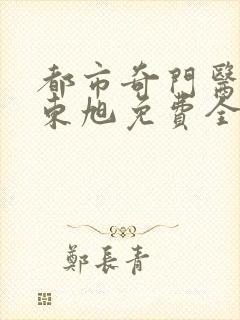 都市奇門醫
東旭免費全
鄭長青